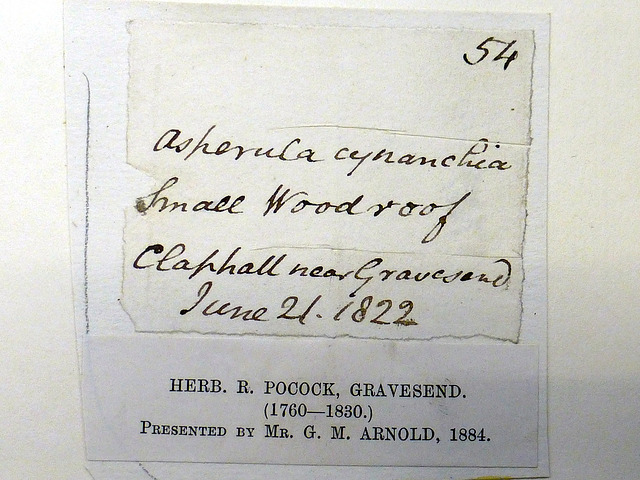 54
Asperula cynanchia
Small Woodroof
Claphall near Gravesend
June 21. 1822
HERB. R. POCOCK, GRAVESEND.
(1760—1830.)
PRESENTED BY MR. G. M. ARNOLD, 1884.